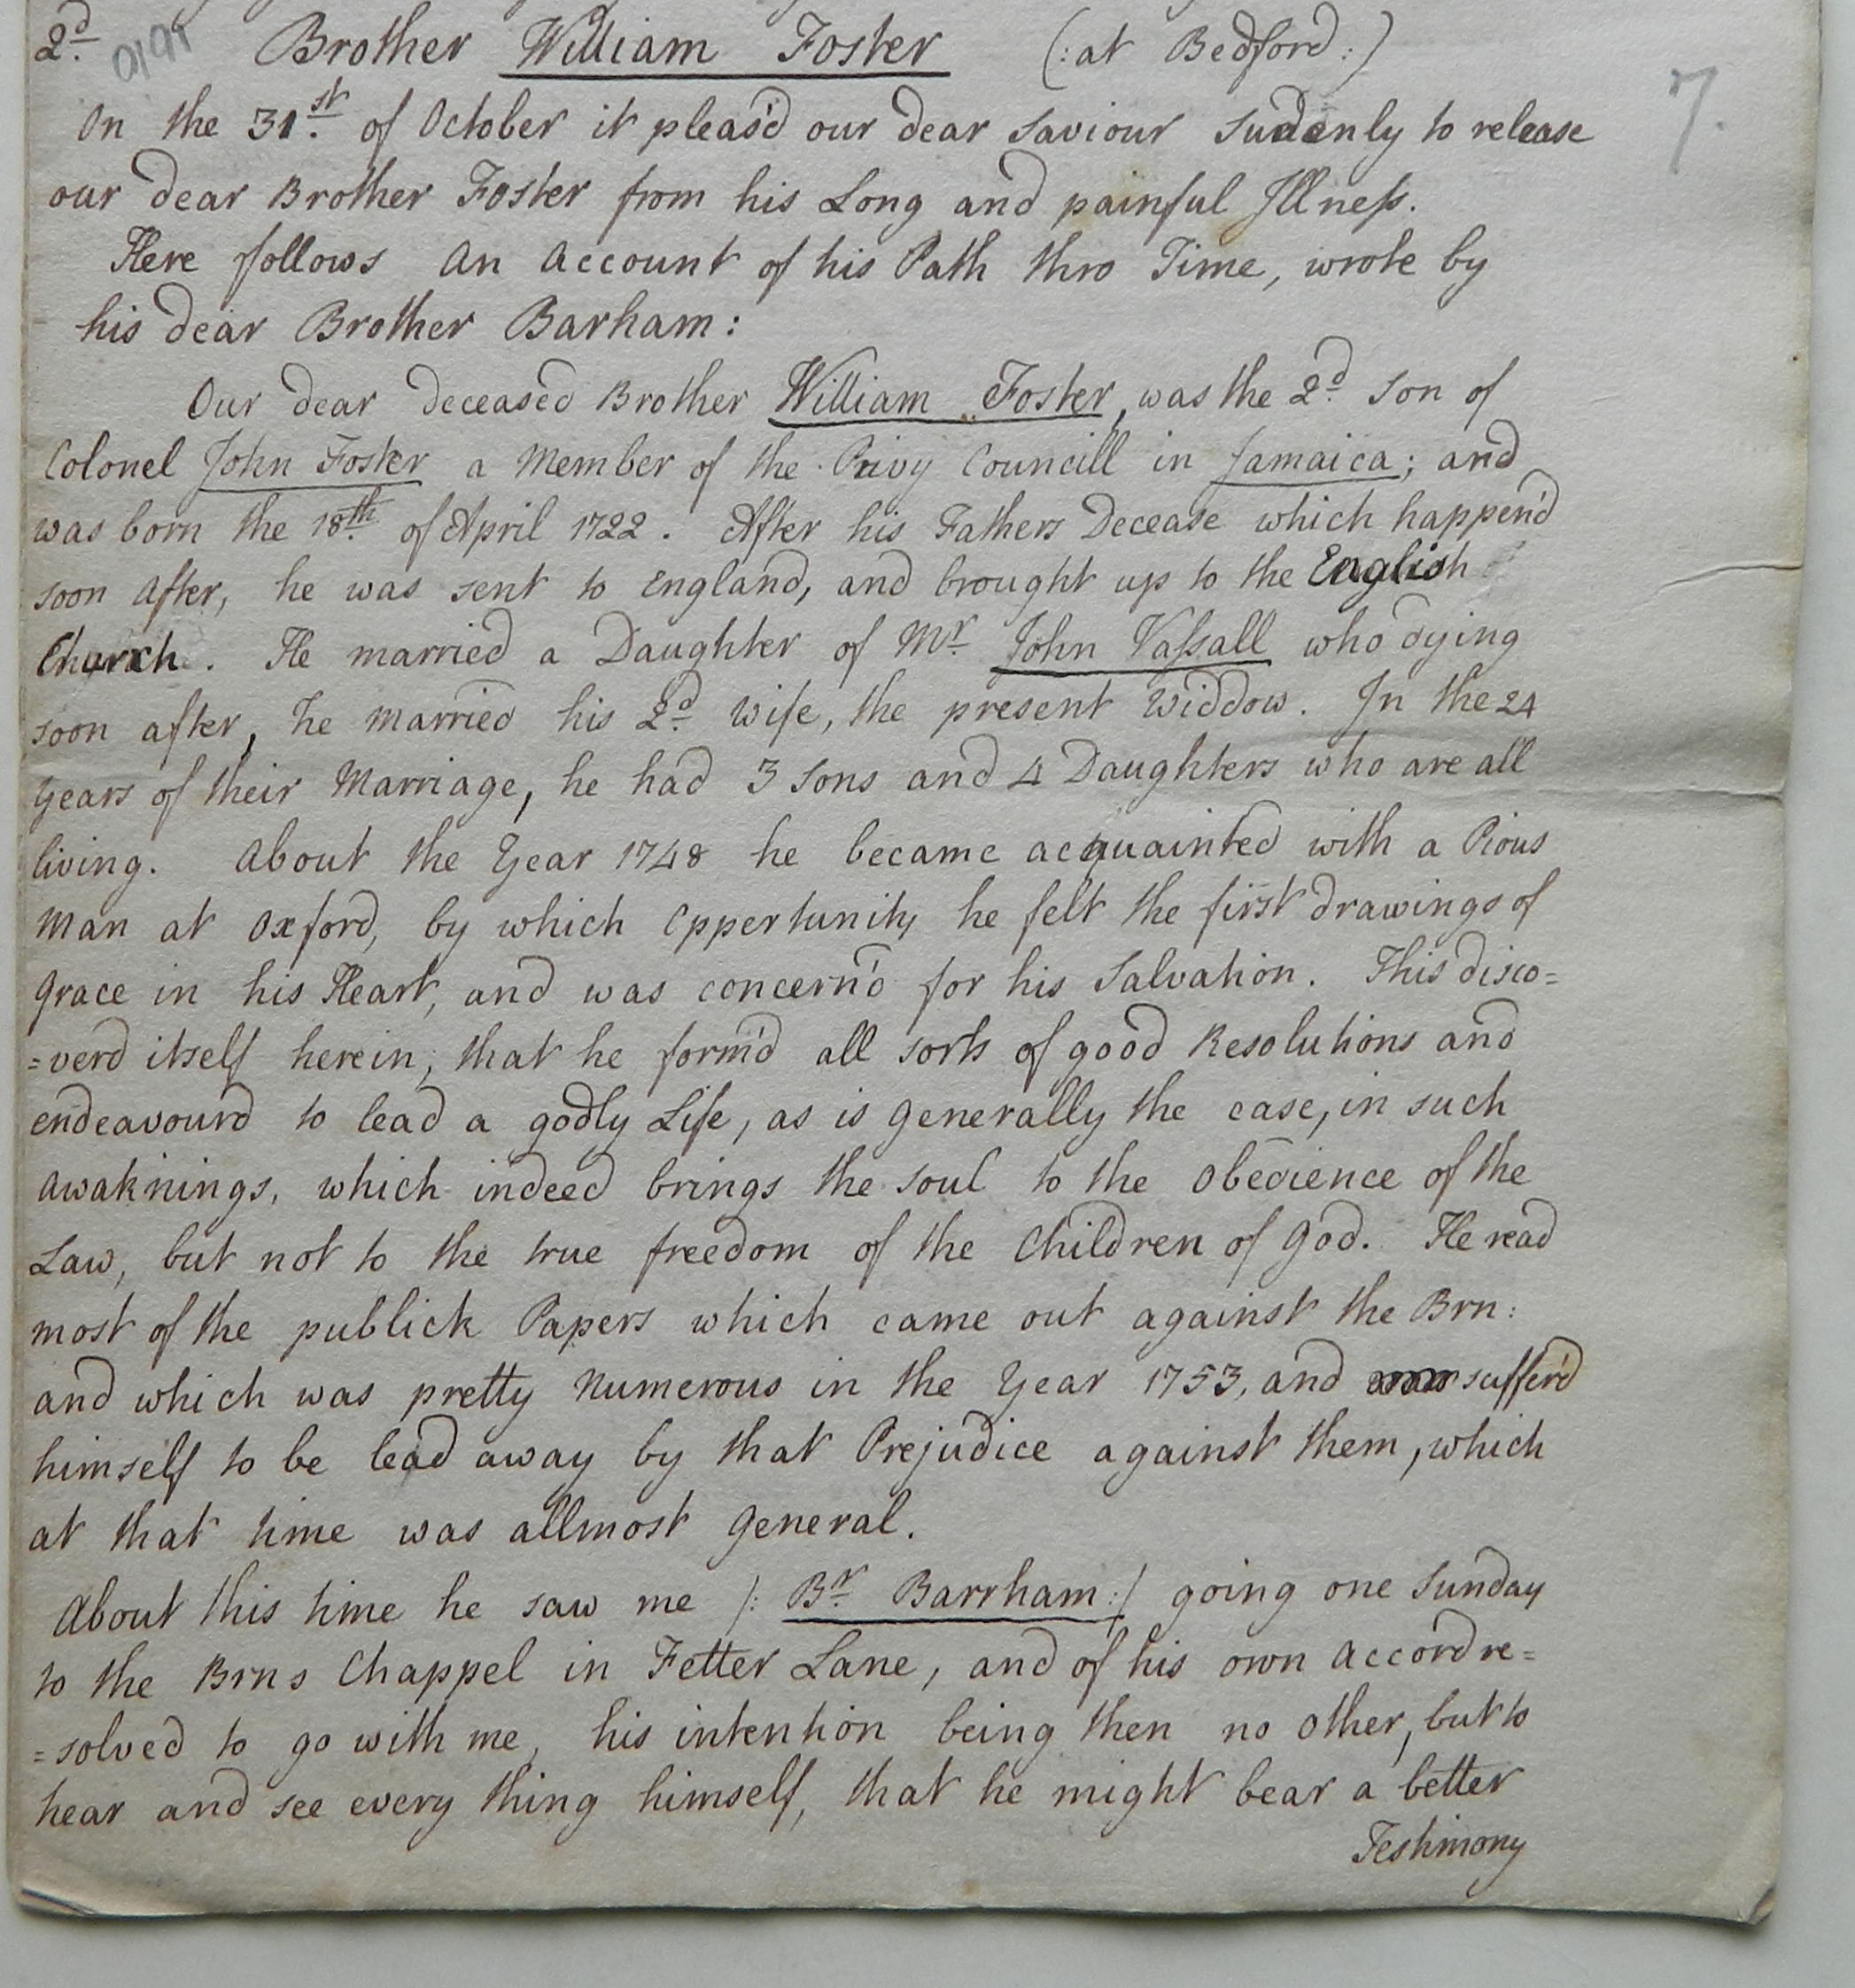 2d. Brother William Foster (: at Bedford :)
7.
On the 31st. of October it pleas'd our dear Saviour sudenly to release
our dear Brother Foster from his Long and painful Illness.
Here follows an account of his Path thro Time, wrote by
his dear Brother Barham:
Our dear deceased Brother William Foster, was the 2d. Son of
Colonel John Foster a Member of the Privy Councill in Jamaica; and
was born the 18th. of April 1722. After his Fathers Decease which happen'd
soon after, he was sent to England, and brought up to the English
Church. He married a Daughter of Mr. John Vassall who dying
soon after, he married his 2d. Wife, the present Widdow. In the 24
Years of their Marriage, he had 3 Sons and 4 Daughters who are all
living. About the Year 1748 he became acquainted with a Pious
Man at Oxford, by which Oppertunity he felt the first drawings of
Grace in his Heart, and was concern'd for his Salvation. This disco=
=verd itself herein, that he form'd all sorts of good Resolutions and
endeavourd to lead a godly Life, as is generally the case, in such
awaknings, which indeed brings the soul to the Obedience of the
Law, but not to the true freedom of the Children of God. He read
most of the publick Papers which came out against the Brn:
and which was pretty numerous in the Year 1753, and suffer'd
himself to be lead away by that Prejudice against them, which
at that time was allmost general.
About this time he saw me /: Br. Barrham :/ going one Sunday
to the Brns Chappel in Fetter Lane, and of his own accord re=
=solved to go with me, his intention being then no other, but to
hear and see every thing himself, that he might bear a better
Testimony